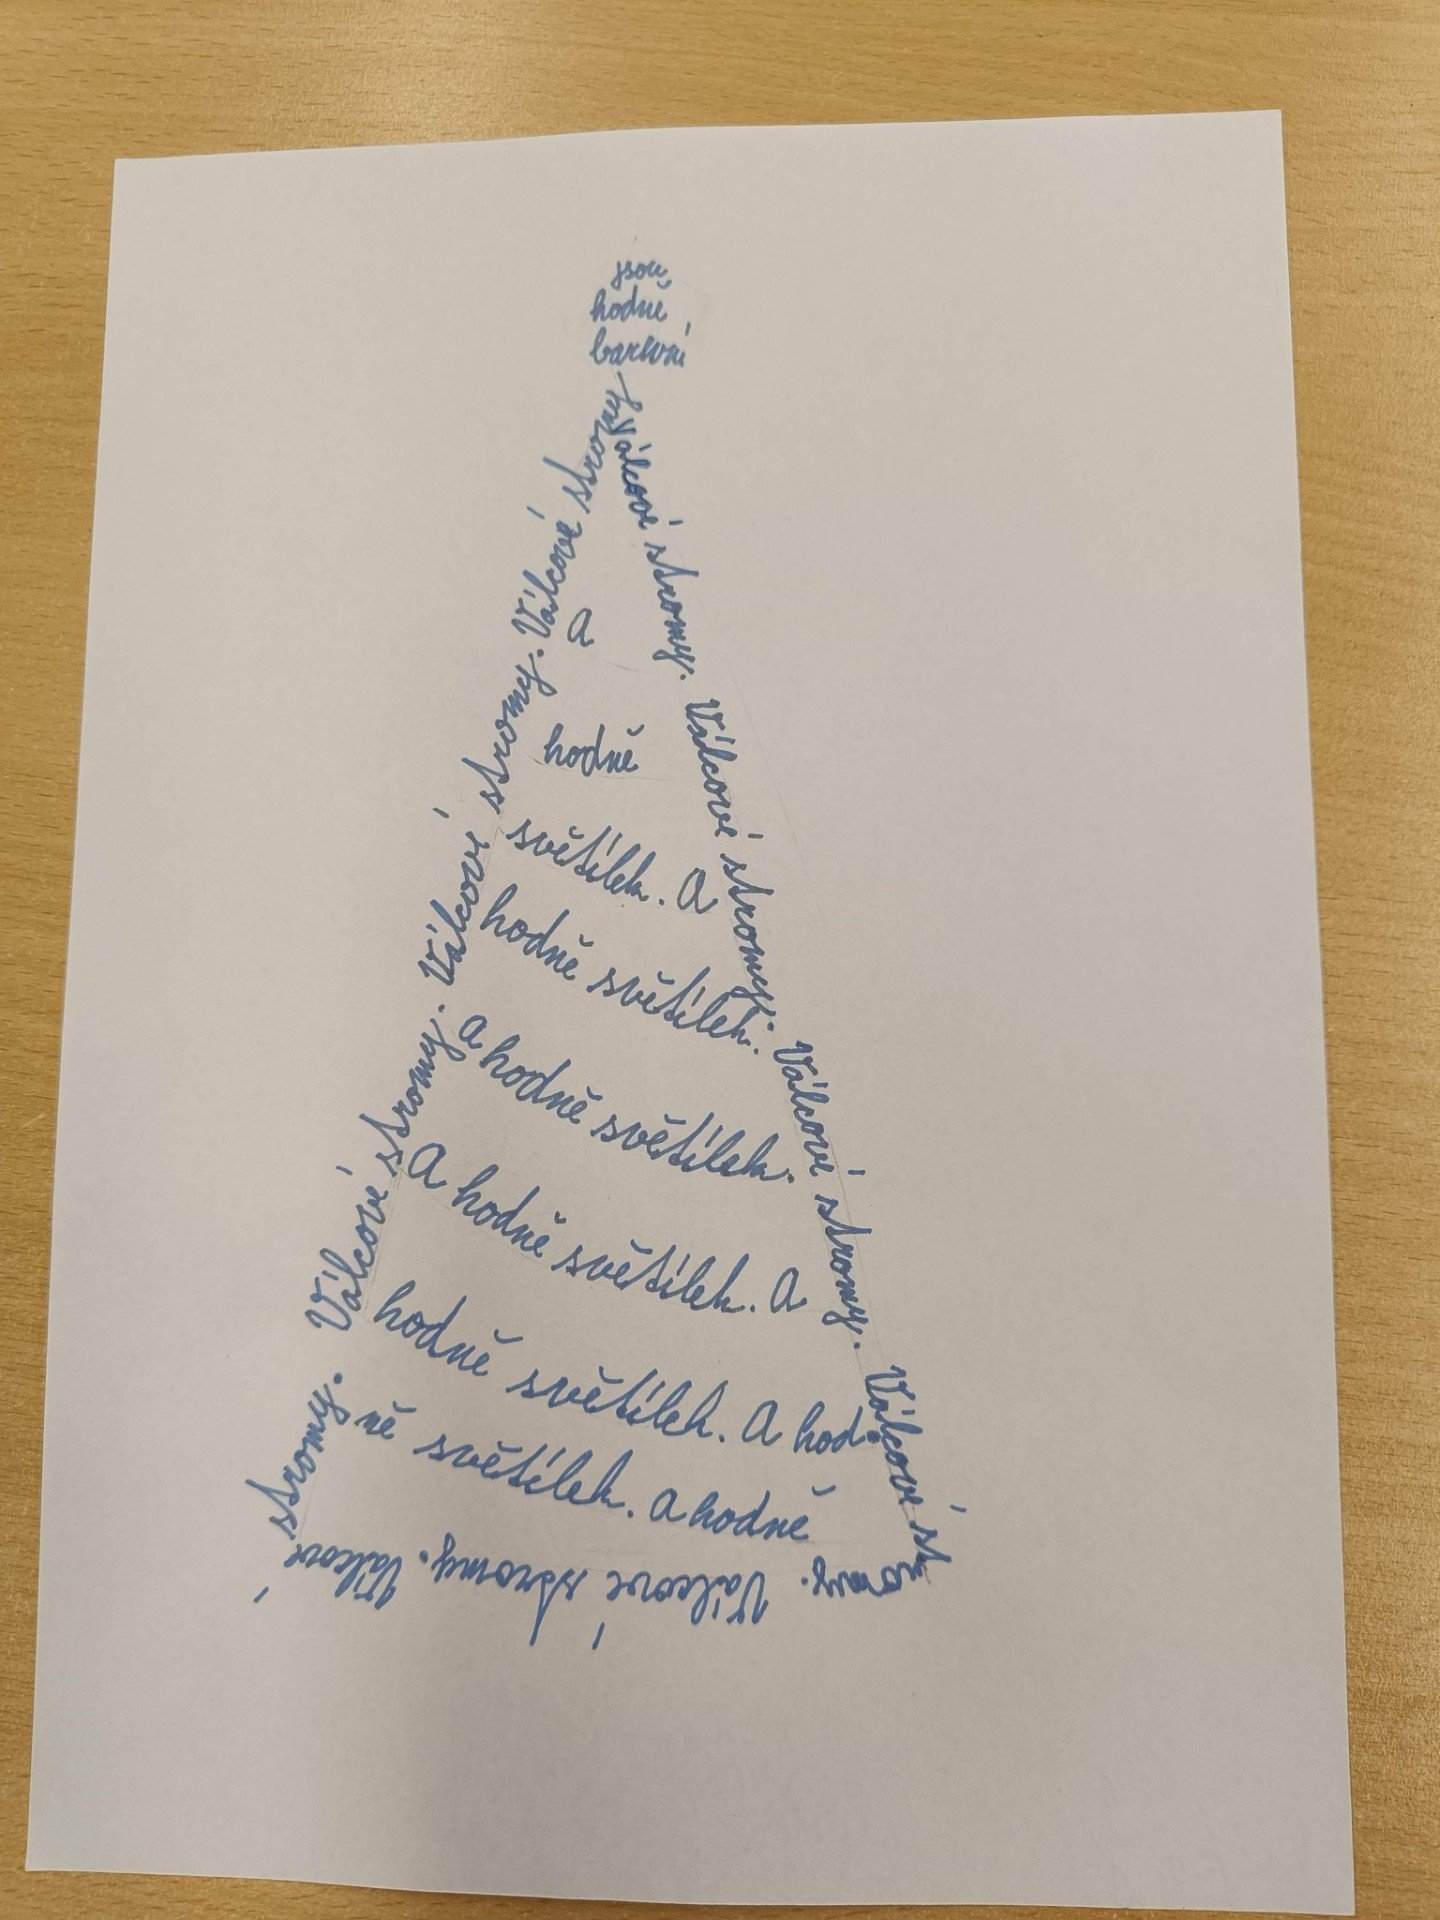 jsou
hodně
barevní
Válcové stromy. Válcové stromy. Válcové stromy. Válcové st
romy. Válcové stromy. Válcové
stromy. Válcové stromy. Válcové stromy. Válcové stromy
a
hodně
světílek. A
hodně světílek.
a hodně světílek.
A hodně světílek. A
hodně světílek. A hod
ně světílek. A hodně